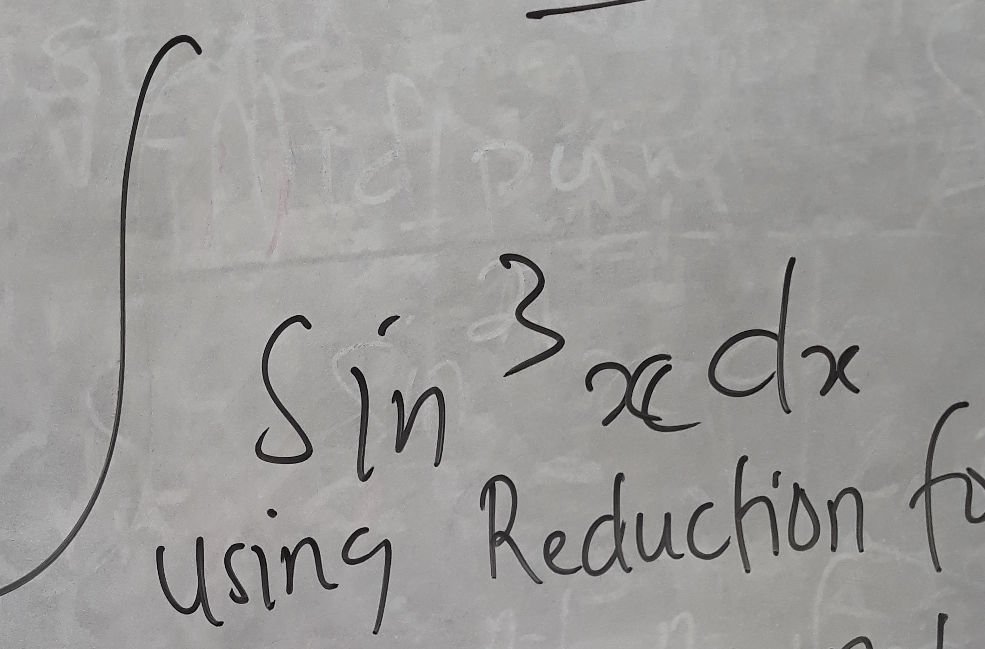 ∫ Sin³x dx
using Reduction fo